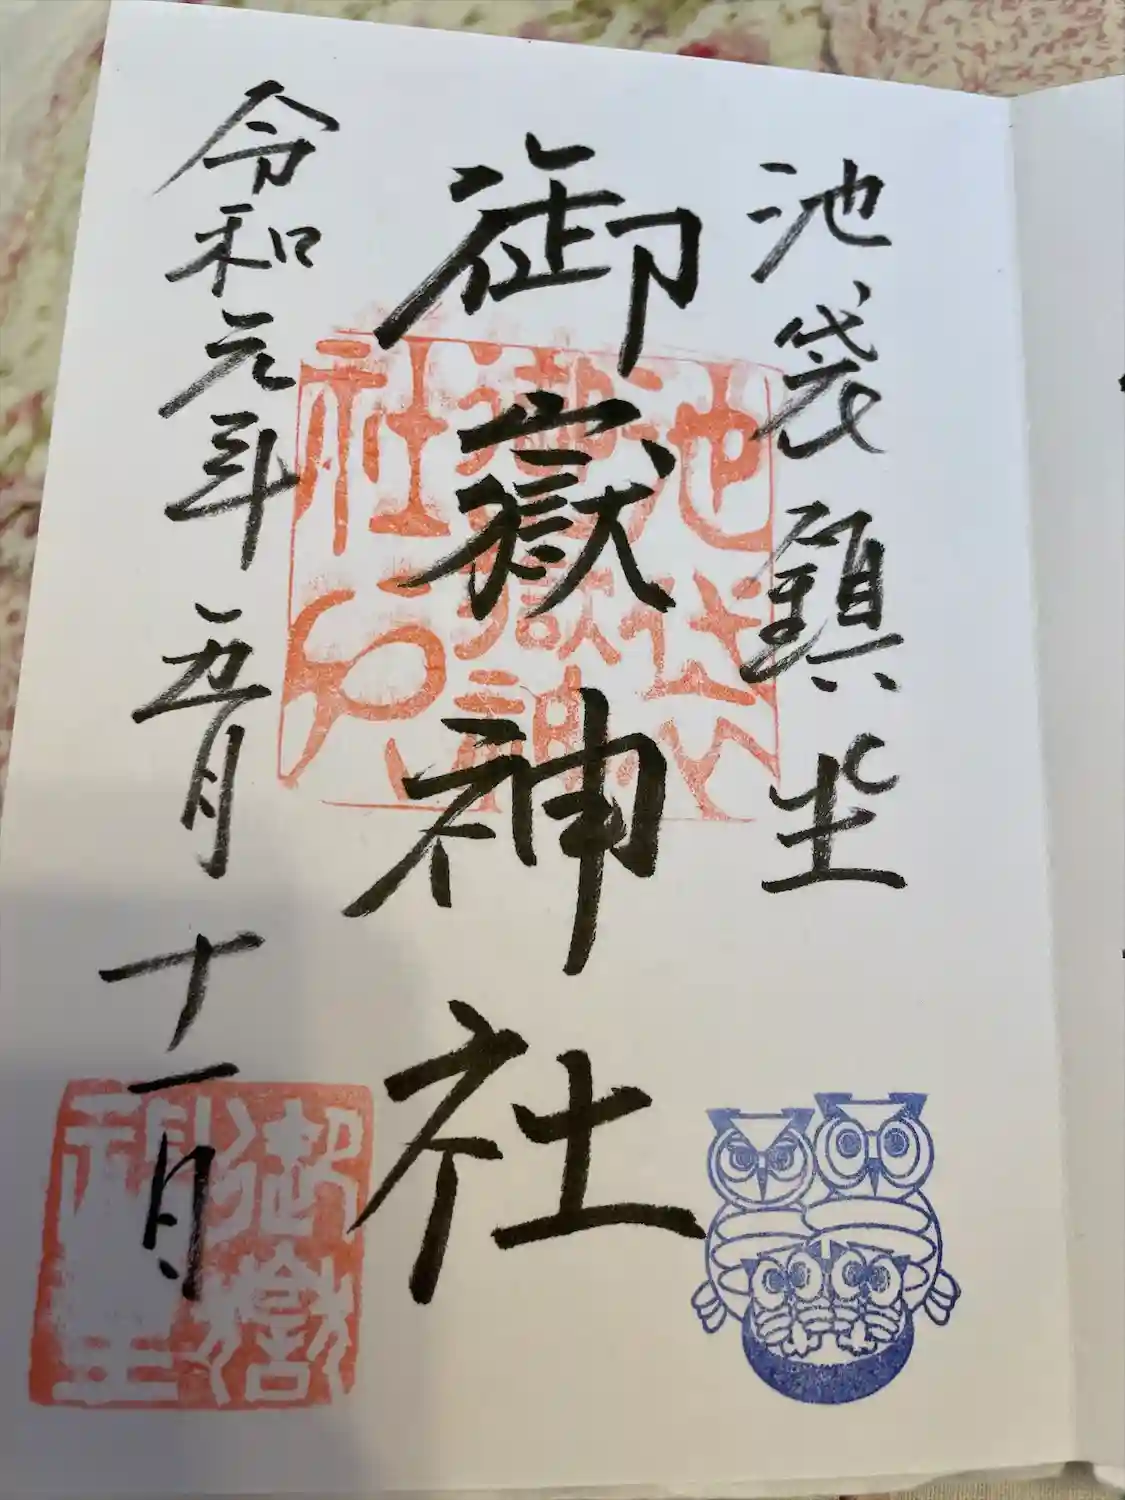 池袋鎮坐
御嶽神社
令和元年五月十一日
池袋
御嶽神
社
御嶽